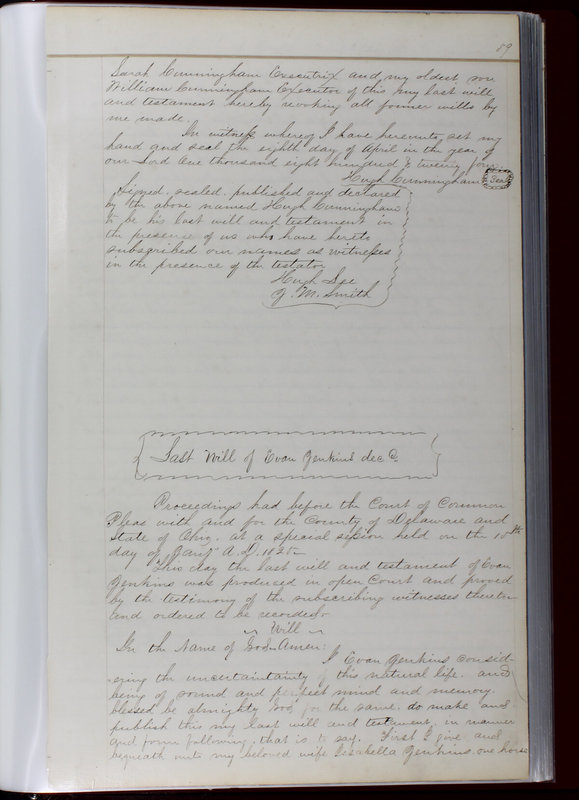 89
Sarah Cunningham Executrix and my oldest son
William Cunningham Executor of this my last will
and testament hereby revoking all former wills by
me made.
In witness whereof I have hereunto set my
hand and seal the eighth day of April in the year of
our Lord One thousand eight hundred & twenty four
Hugh Cunningham Seal
Signed, sealed, published and declared
by the above named Hugh Cunningham
to be his last will and testament in
the presence of us who have hereto
subscribed our names as witnesses
in the presence of the testator
Hugh Lee
J. M. Smith
Last Will of Evan Jenkins dec'd.
Proceedings had before the Court of Common
Pleas with and for the County of Delaware and
State of Ohio. at a special session held on the 10th
day of Jany A.D. 1825-
This day the last will and testament of Evan
Jenkins was produced in open Court and proved
by the testimony of the subscribing witnesses thereto
and ordered to be recorded.
Will
In the Name of God Amen:
I Evan Jenkins consid-
ering the uncertaintainty of this natural life. and
being of sound and perfect mind and memory.
blessed be almighty God for the same. do make and
publish this my last will and testament. in manner
and form following, that is to say. First I give and
bequeath unto my beloved wife Jenkins. one horse